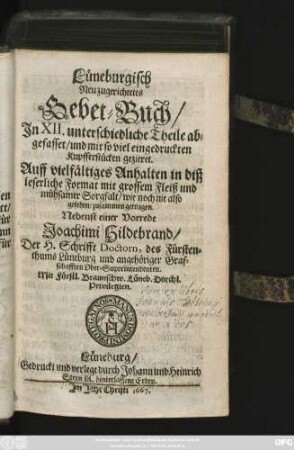 Lüneburgisch
Neuzugerichtetes
Gebet-Buch/
In XII. unterschiedliche Theile ab-
gefasset/ und mit so viel eingedruckten
Kupfferstücken gezieret.
Auff vielfältiges Anhalten in diß
leserliche Format mit grossem Fleiß und
mühsamer Sorgfalt/ wie noch nie also
gesehen/ zusammen getragen.
Nebenst einer Vorrede
Joachimi Hildebrand/
Der H. Schrifft Doctorn, des Fürsten-
thums Lüneburg und angehöriger Graf-
schafften Ober-Superintendenten.
Mit Fürstl. Braunschw. Lüneb. Durchl.
Privilegien.
Lüneburg/
Gedruckt und verlegt durch Johann und Heinrich
Stern sel. hinterlassene Erben.
Im Jahr Christi 1667.